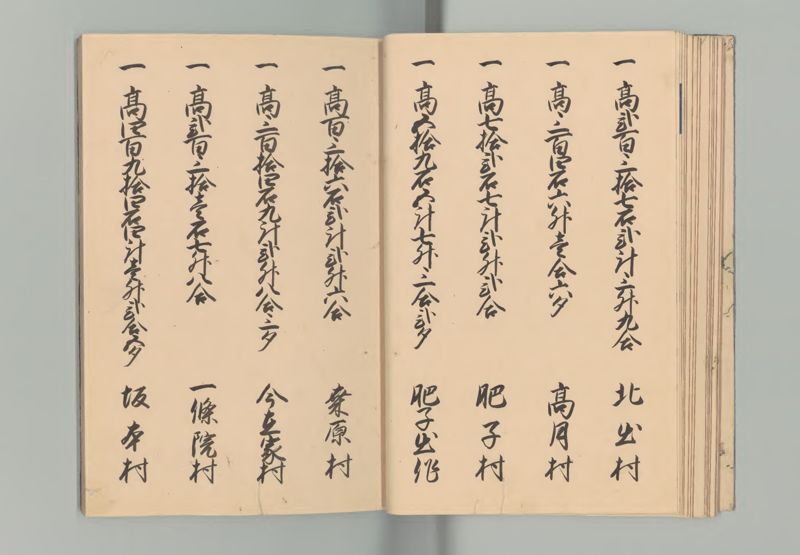 一 高弐百三拾七石弐斗三升九合 北出村
一 高三百四石六升壱合六夕 高月村
一 高七拾弐石七斗弐升弐合 肥子村
一 高五拾九石五斗七升三合弐夕 肥子出作
一 高百三拾六石弐斗弐升六合 桒原村
一 高三百拾四石九斗弐升八合三夕 今在家村
一 高弐百三拾壱石七升八合 一條院村
一 高四百九拾四石四斗壱升弐合五夕 坂本村